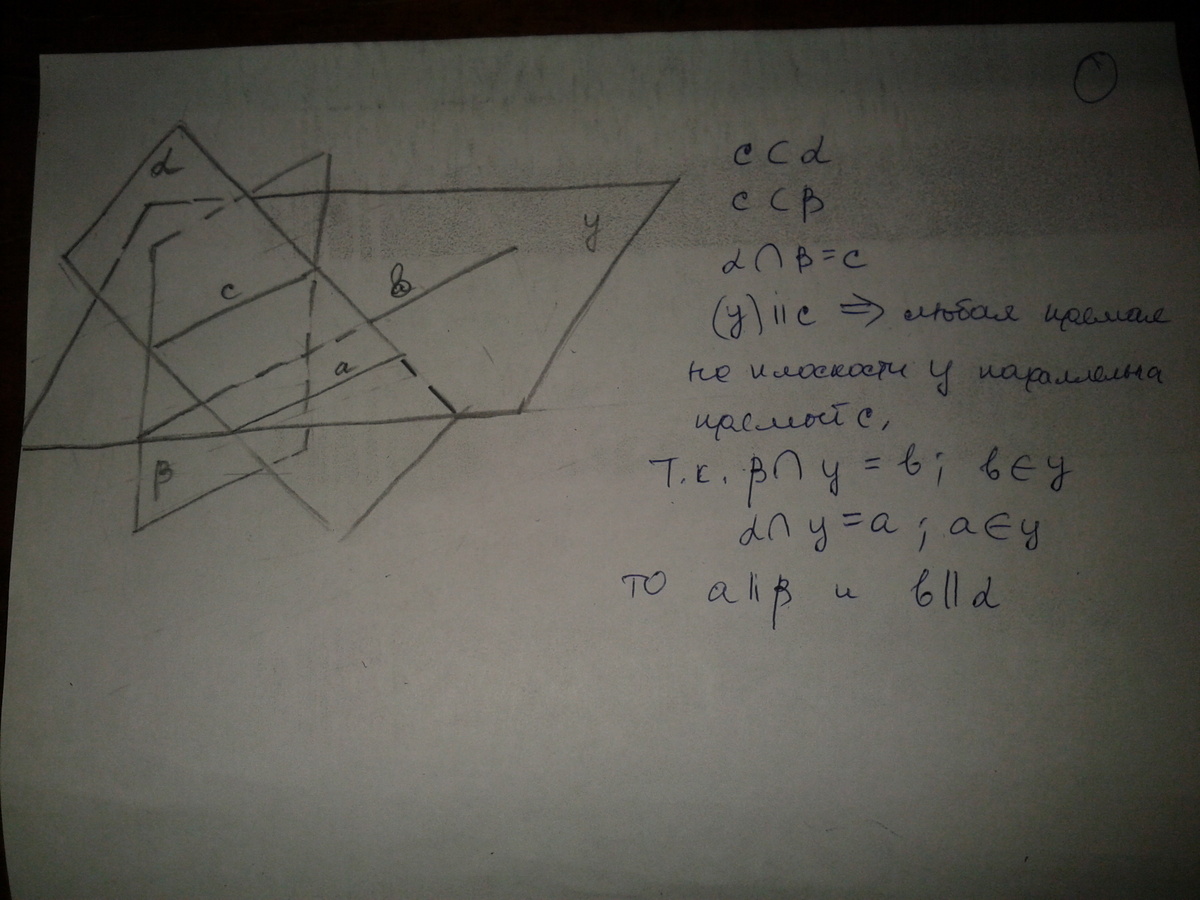 α
c
в
y
a
β
c ⊂ α
c ⊂ β
α ∩ β = c
(y) || c ⇒ любая прямая
на плоскости y параллельна
прямой c,
Т.к. β ∩ y = в; в ∈ y
α ∩ y = a ; a ∈ y
то a || β и в || α